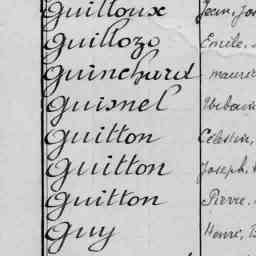 Guilloux Jean, Jos
Guillozo Emile,
Guinchard Mauric
Guisnel Urbain
Guitton Célestin,
Guitton Joseph,
Guitton Pierre,
Guy Henri,